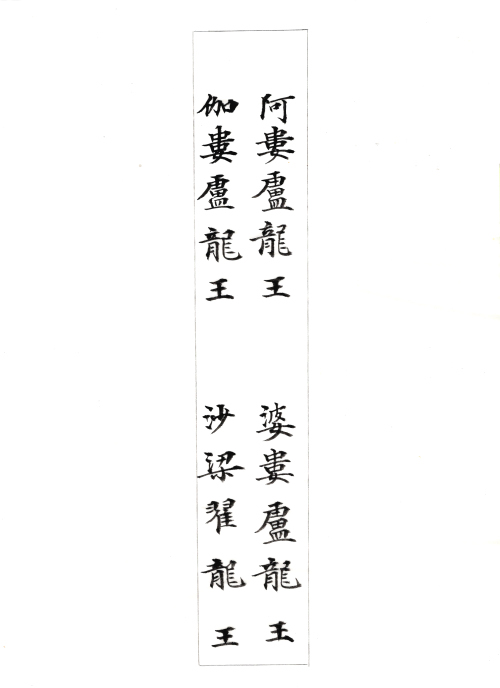 阿婁盧龍王 婆婁盧龍王
伽婁盧龍王 沙梁翟龍王